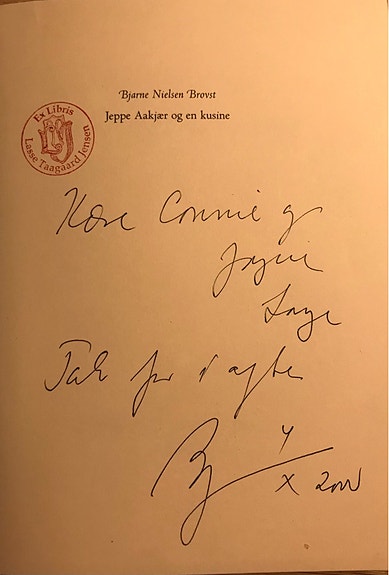 Bjarne Nielsen Brovst
Jeppe Aakjær og en kusine
Ex Libris
Lasse Taagaard Jensen
Kære Connie og
Tak for i aften
4
X